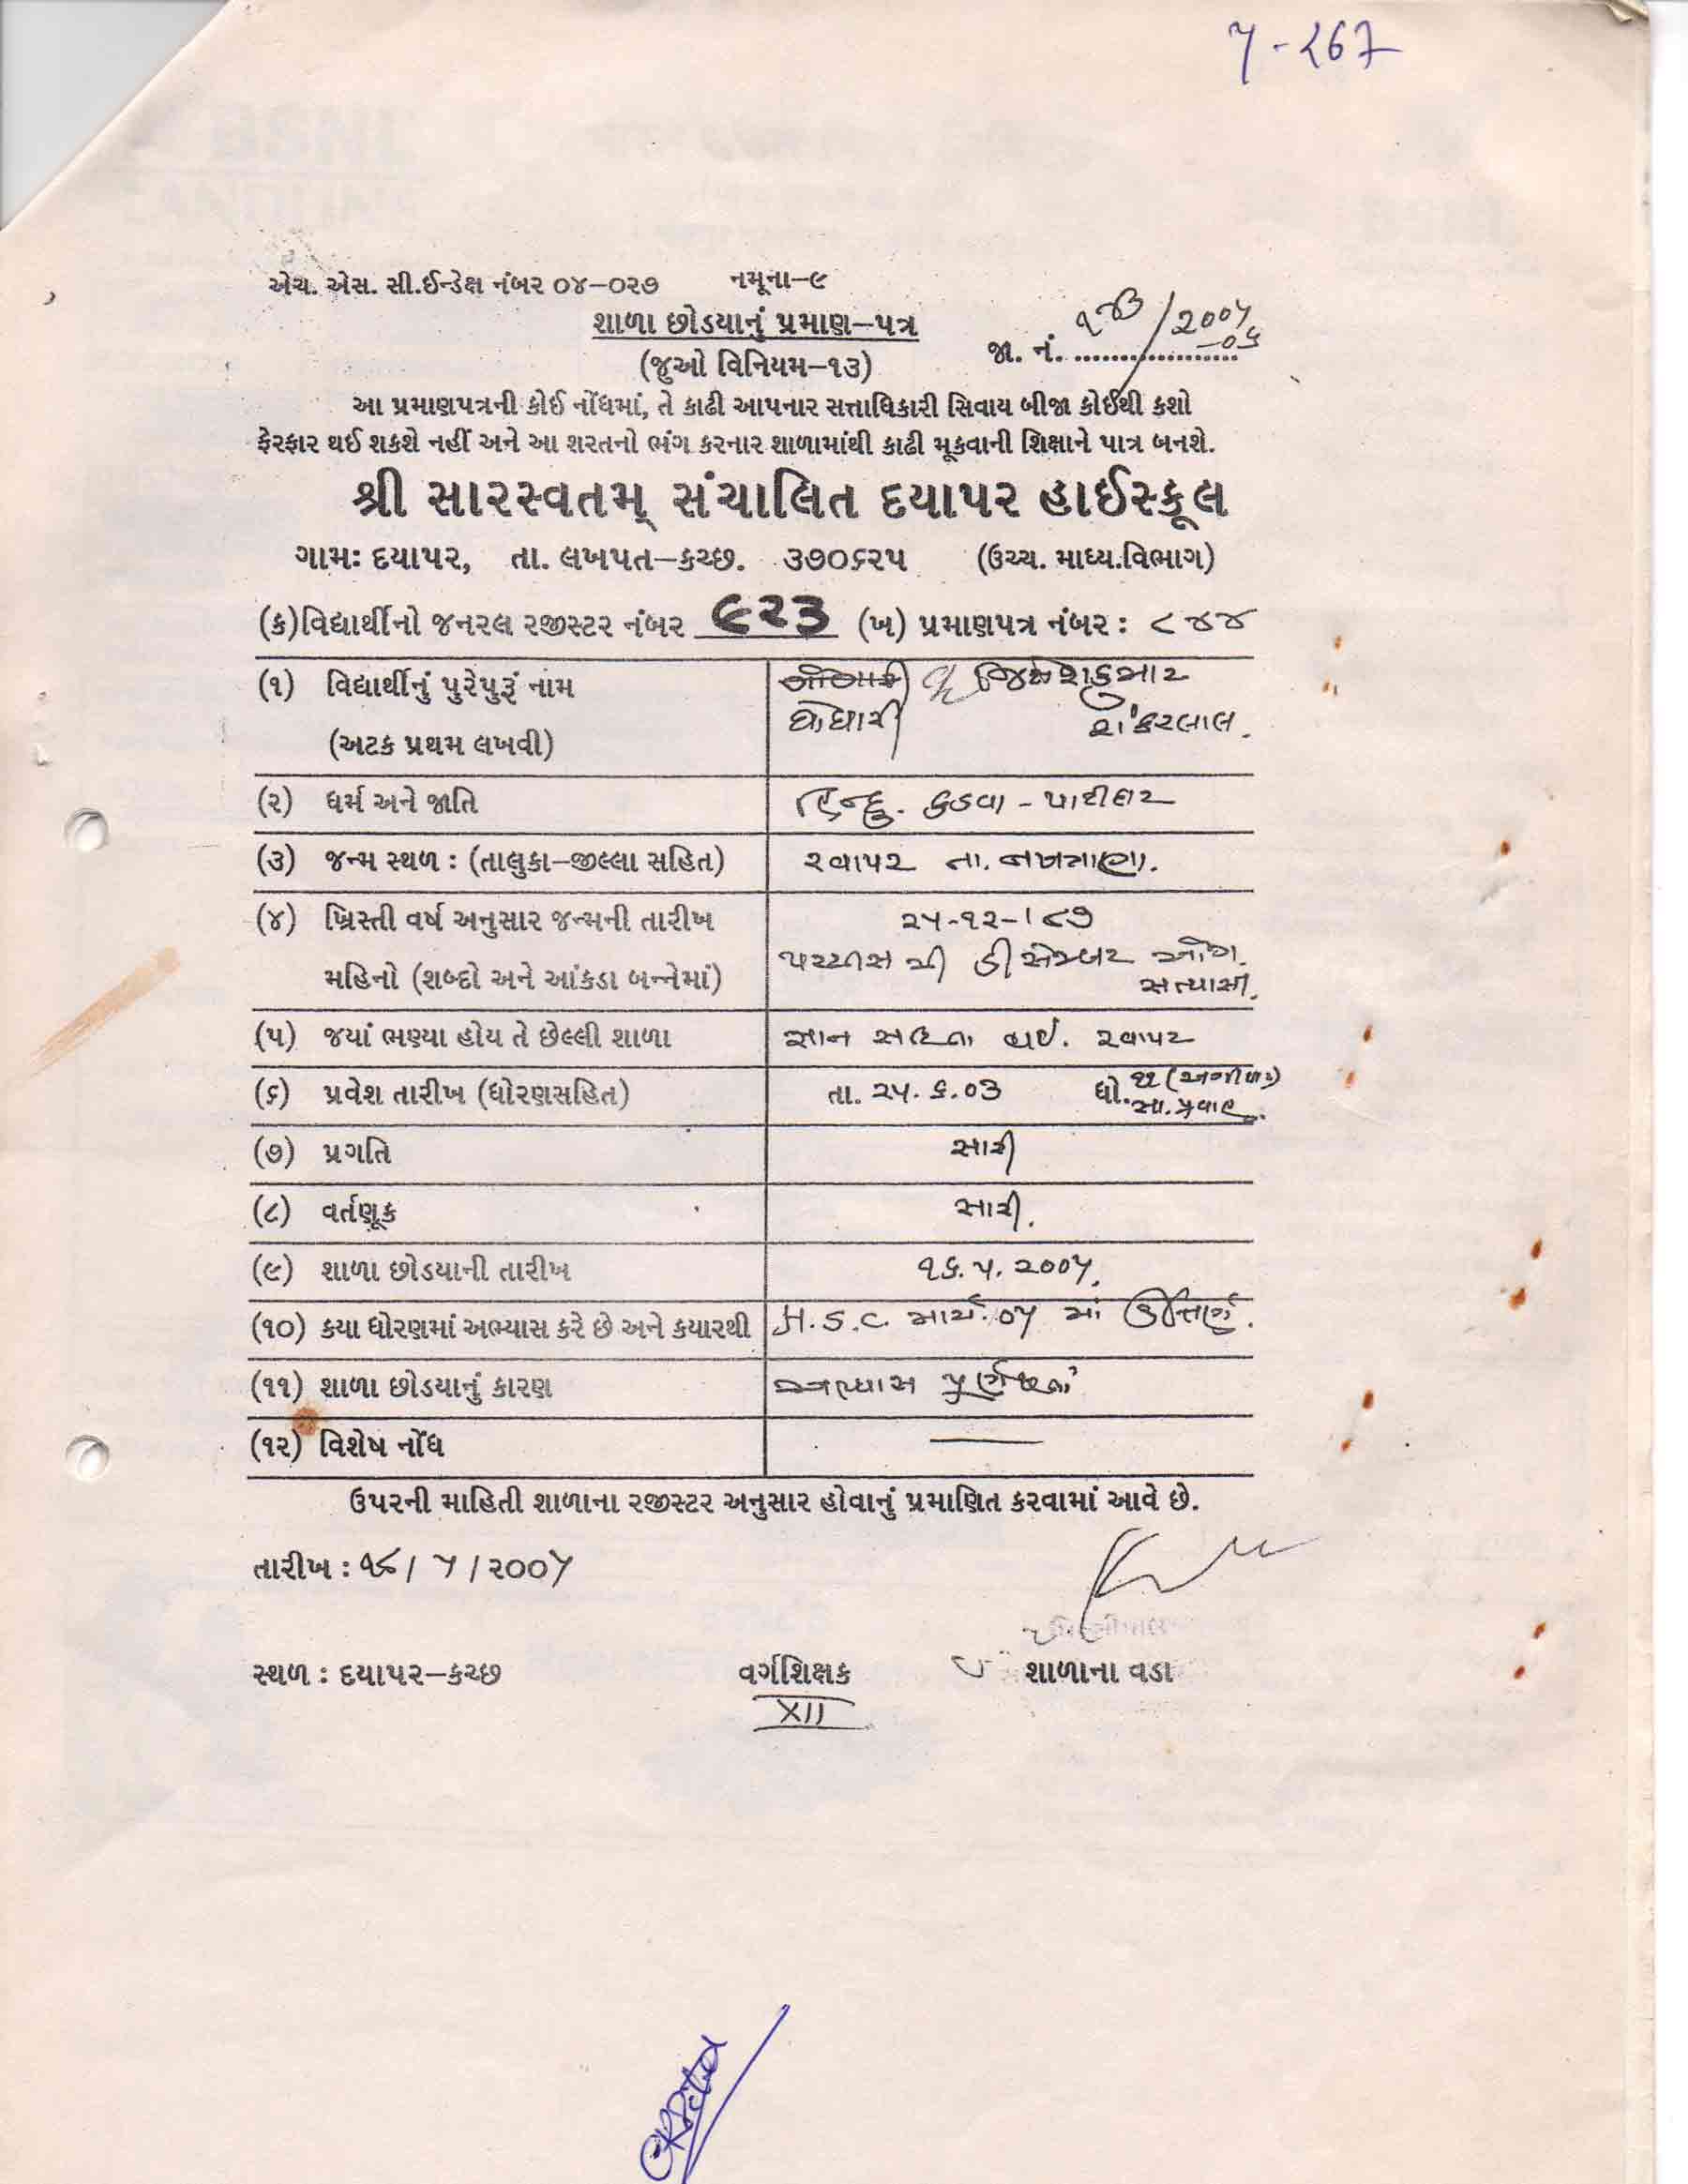 ૫-267
એચ. એસ. સી.ઈન્ડેક્ષ નંબર ૦૪–૦૨૭ નમૂના–૯
શાળા છોડયાનું પ્રમાણ–પત્ર
જા. નં. /૨૦૦૫
–૦૬
(જુઓ વિનિયમ–૧૩)
આ પ્રમાણપત્રની કોઈ નોંધમાં, તે કાઢી આપનાર સત્તાધિકારી સિવાય બીજા કોઈથી કશો
ફેરફાર થઈ શકશે નહીં અને આ શરતનો ભંગ કરનાર શાળામાંથી કાઢી મૂકવાની શિક્ષાને પાત્ર બનશે.
શ્રી સારસ્વતમ્ સંચાલિત દયાપર હાઈસ્કૂલ
ગામઃ દયાપર, તા. લખપત–કચ્છ. ૩૭૦૬૨૫ (ઉચ્ચ. માધ્ય.વિભાગ)
(ક)વિદ્યાર્થીનો જનરલ રજીસ્ટર નંબર ૯૨૩ (ખ) પ્રમાણપત્ર નંબર : ૮૪૪
(૧) વિદ્યાર્થીનું પુરેપુરૂં નામ જિજ્ઞેશકુમાર
(અટક પ્રથમ લખવી) ધોઘારી શંકરલાલ.
(૨) ધર્મ અને જાતિ હિન્દુ. કડવા - પાટીદાર
(૩) જન્મ સ્થળ : (તાલુકા–જીલ્લા સહિત) રવાપર તા. નખત્રાણા.
(૪) ખ્રિસ્તી વર્ષ અનુસાર જન્મની તારીખ ૨૫-૧૨-૧૮૭
મહિનો (શબ્દો અને આંકડા બન્નેમાં) પચ્ચીસ મી ડીસેમ્બર ઓગ.
સત્યાસી.
(૫) જયાં ભણ્યા હોય તે છેલ્લી શાળા હાઈ. રવાપર
(૬) પ્રવેશ તારીખ (ધોરણસહિત) તા. ૨૫.૬.૦૩ ધો. ૧૧ (અગીયાર)
સા. પ્રવાહ.
(૭) પ્રગતિ સારી
(૮) વર્તણૂક સારી.
(૯) શાળા છોડયાની તારીખ ૧૬.૫.૨૦૦૫.
(૧૦) કયા ધોરણમાં અભ્યાસ કરે છે અને કયારથી H.S.C. માર્ચ.૦૫ માં ઉત્તિર્ણ.
(૧૧) શાળા છોડયાનું કારણ અભ્યાસ પૂર્ણ થતાં
(૧૨) વિશેષ નોંધ —
ઉપરની માહિતી શાળાના રજીસ્ટર અનુસાર હોવાનું પ્રમાણિત કરવામાં આવે છે.
તારીખ : ૧૮/ ૫ /૨૦૦૫
સ્થળ : દયાપર–કચ્છ વર્ગશિક્ષક શાળાના વડા
XII